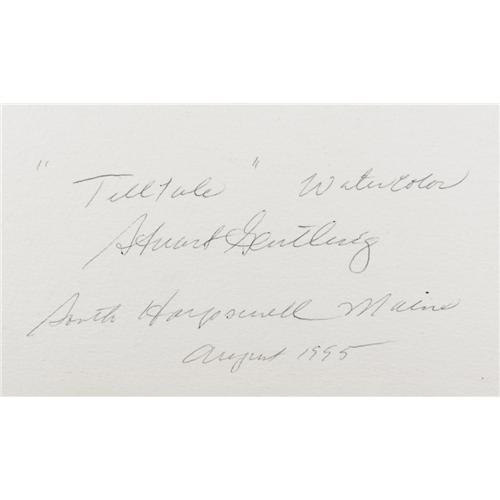 "Telltale" Watercolor
Stuart Gentling
South Harpswell Maine
August 1995